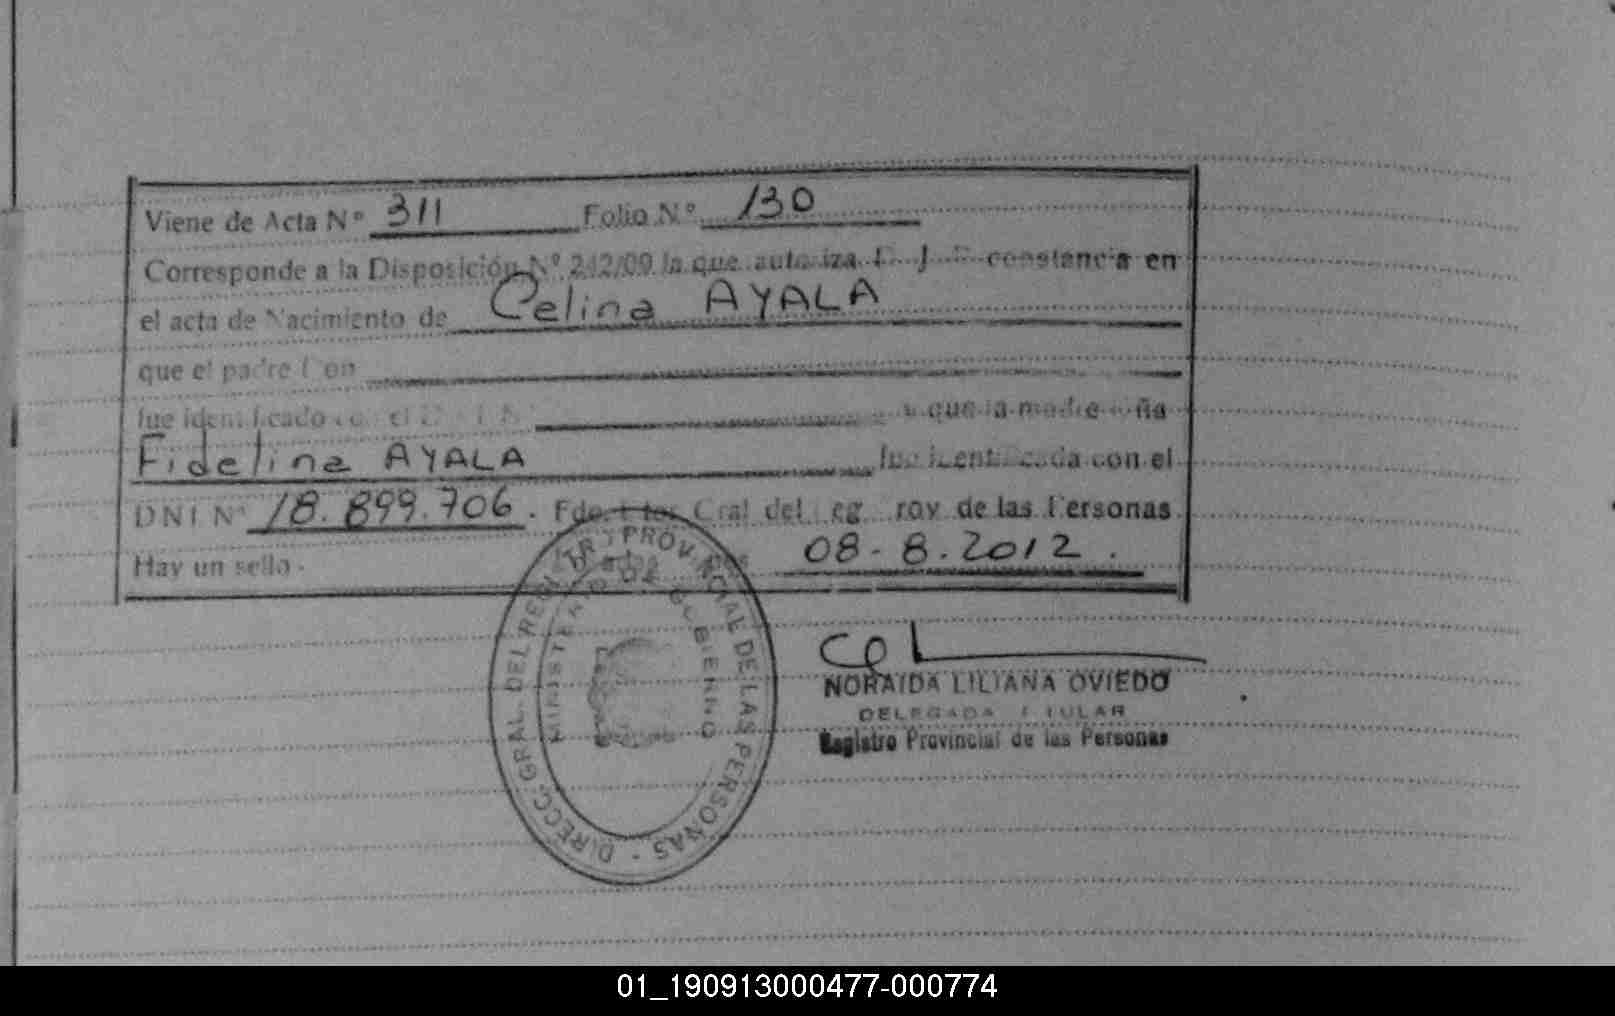 Viene de Acta Nº 311 Folio Nº 130
Corresponde a la Disposición Nº 242/09 la que autoriza constancia en
el acta de Nacimiento de Celina AYALA
que el padre Don
fue identificado con el y que la madre doña
Fidelina AYALA fue identificada con el
DNI Nº 18.899.706. Fdo. Gral del Reg Prov de las Personas
Hay un sello. 08-8.2012.
DIRECC. GRAL. DEL REGISTRO PROVINCIAL DE LAS PERSONAS
MINISTERIO DE GOBIERNO
NORAIDA LILIANA OVIEDO
DELEGADA TITULAR
Registro Provincial de las Personas
01_190913000477-000774